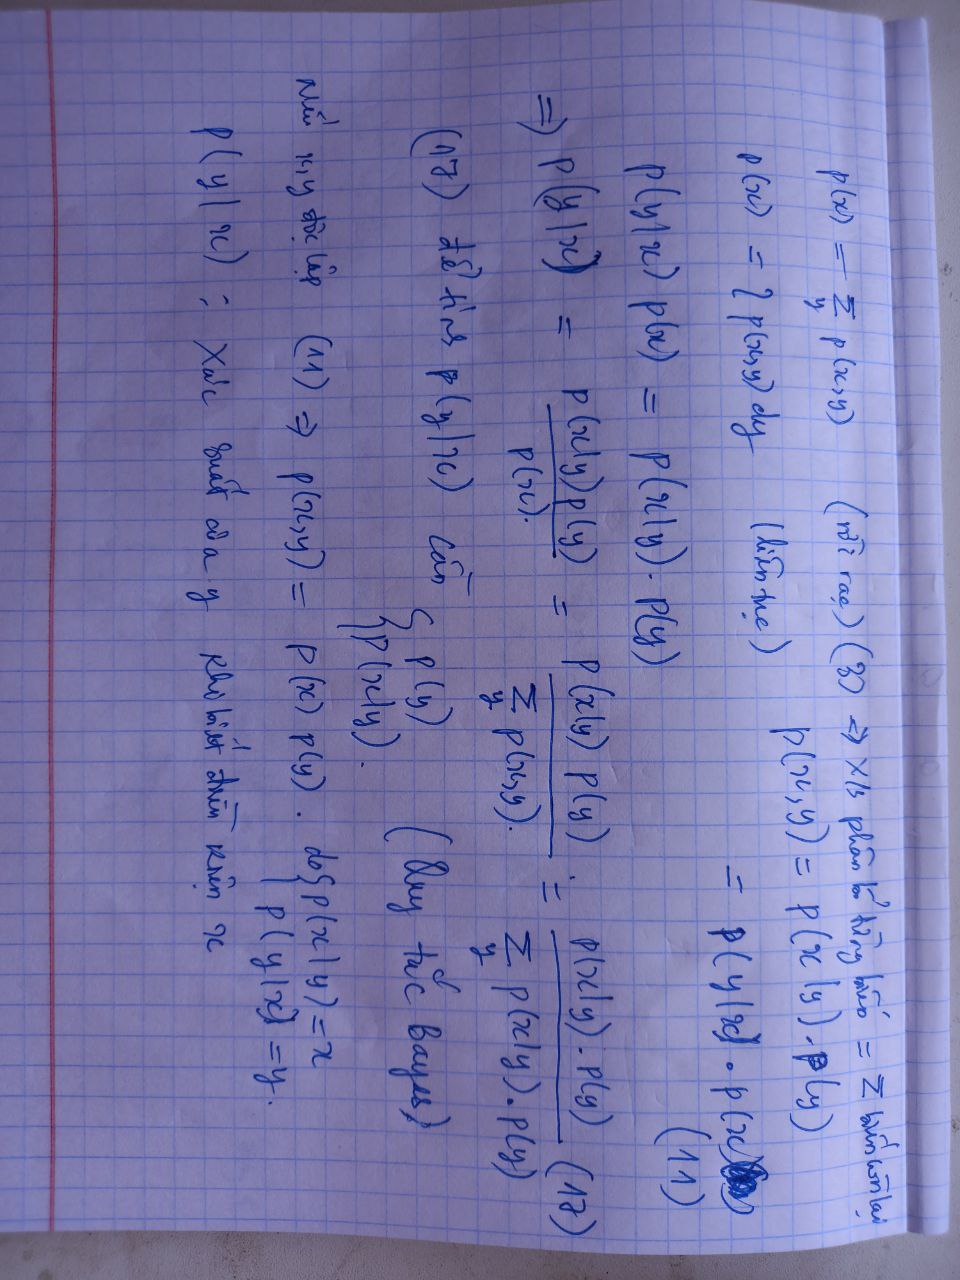 p(x) = Σ_y p(x,y) (rời rạc) (3) => X/s phân bố từng biến = Σ biến còn lại
p(x,y) = p(x|y) . p(y)
p(x) = ∫ p(x,y) dy (liên tục)
= p(y|x) . p(x)
(11)
p(y|x) p(x) = p(x|y) . p(y)
=> p(y|x) = p(x|y) p(y) / p(x) . = p(x|y) p(y) / Σ_y p(x,y) . = p(x|y) . p(y) / Σ_y p(x|y) . p(y) (17)
(17) để tính p(y|x) cần { p(y) (Quy tắc Bayes)
p(x|y) .
Nếu x,y độc lập (11) => p(x,y) = p(x) p(y) . do { p(x|y) = x
p(y|x) = y .
p(y|x) : Xác suất của y khi biết điều kiện x